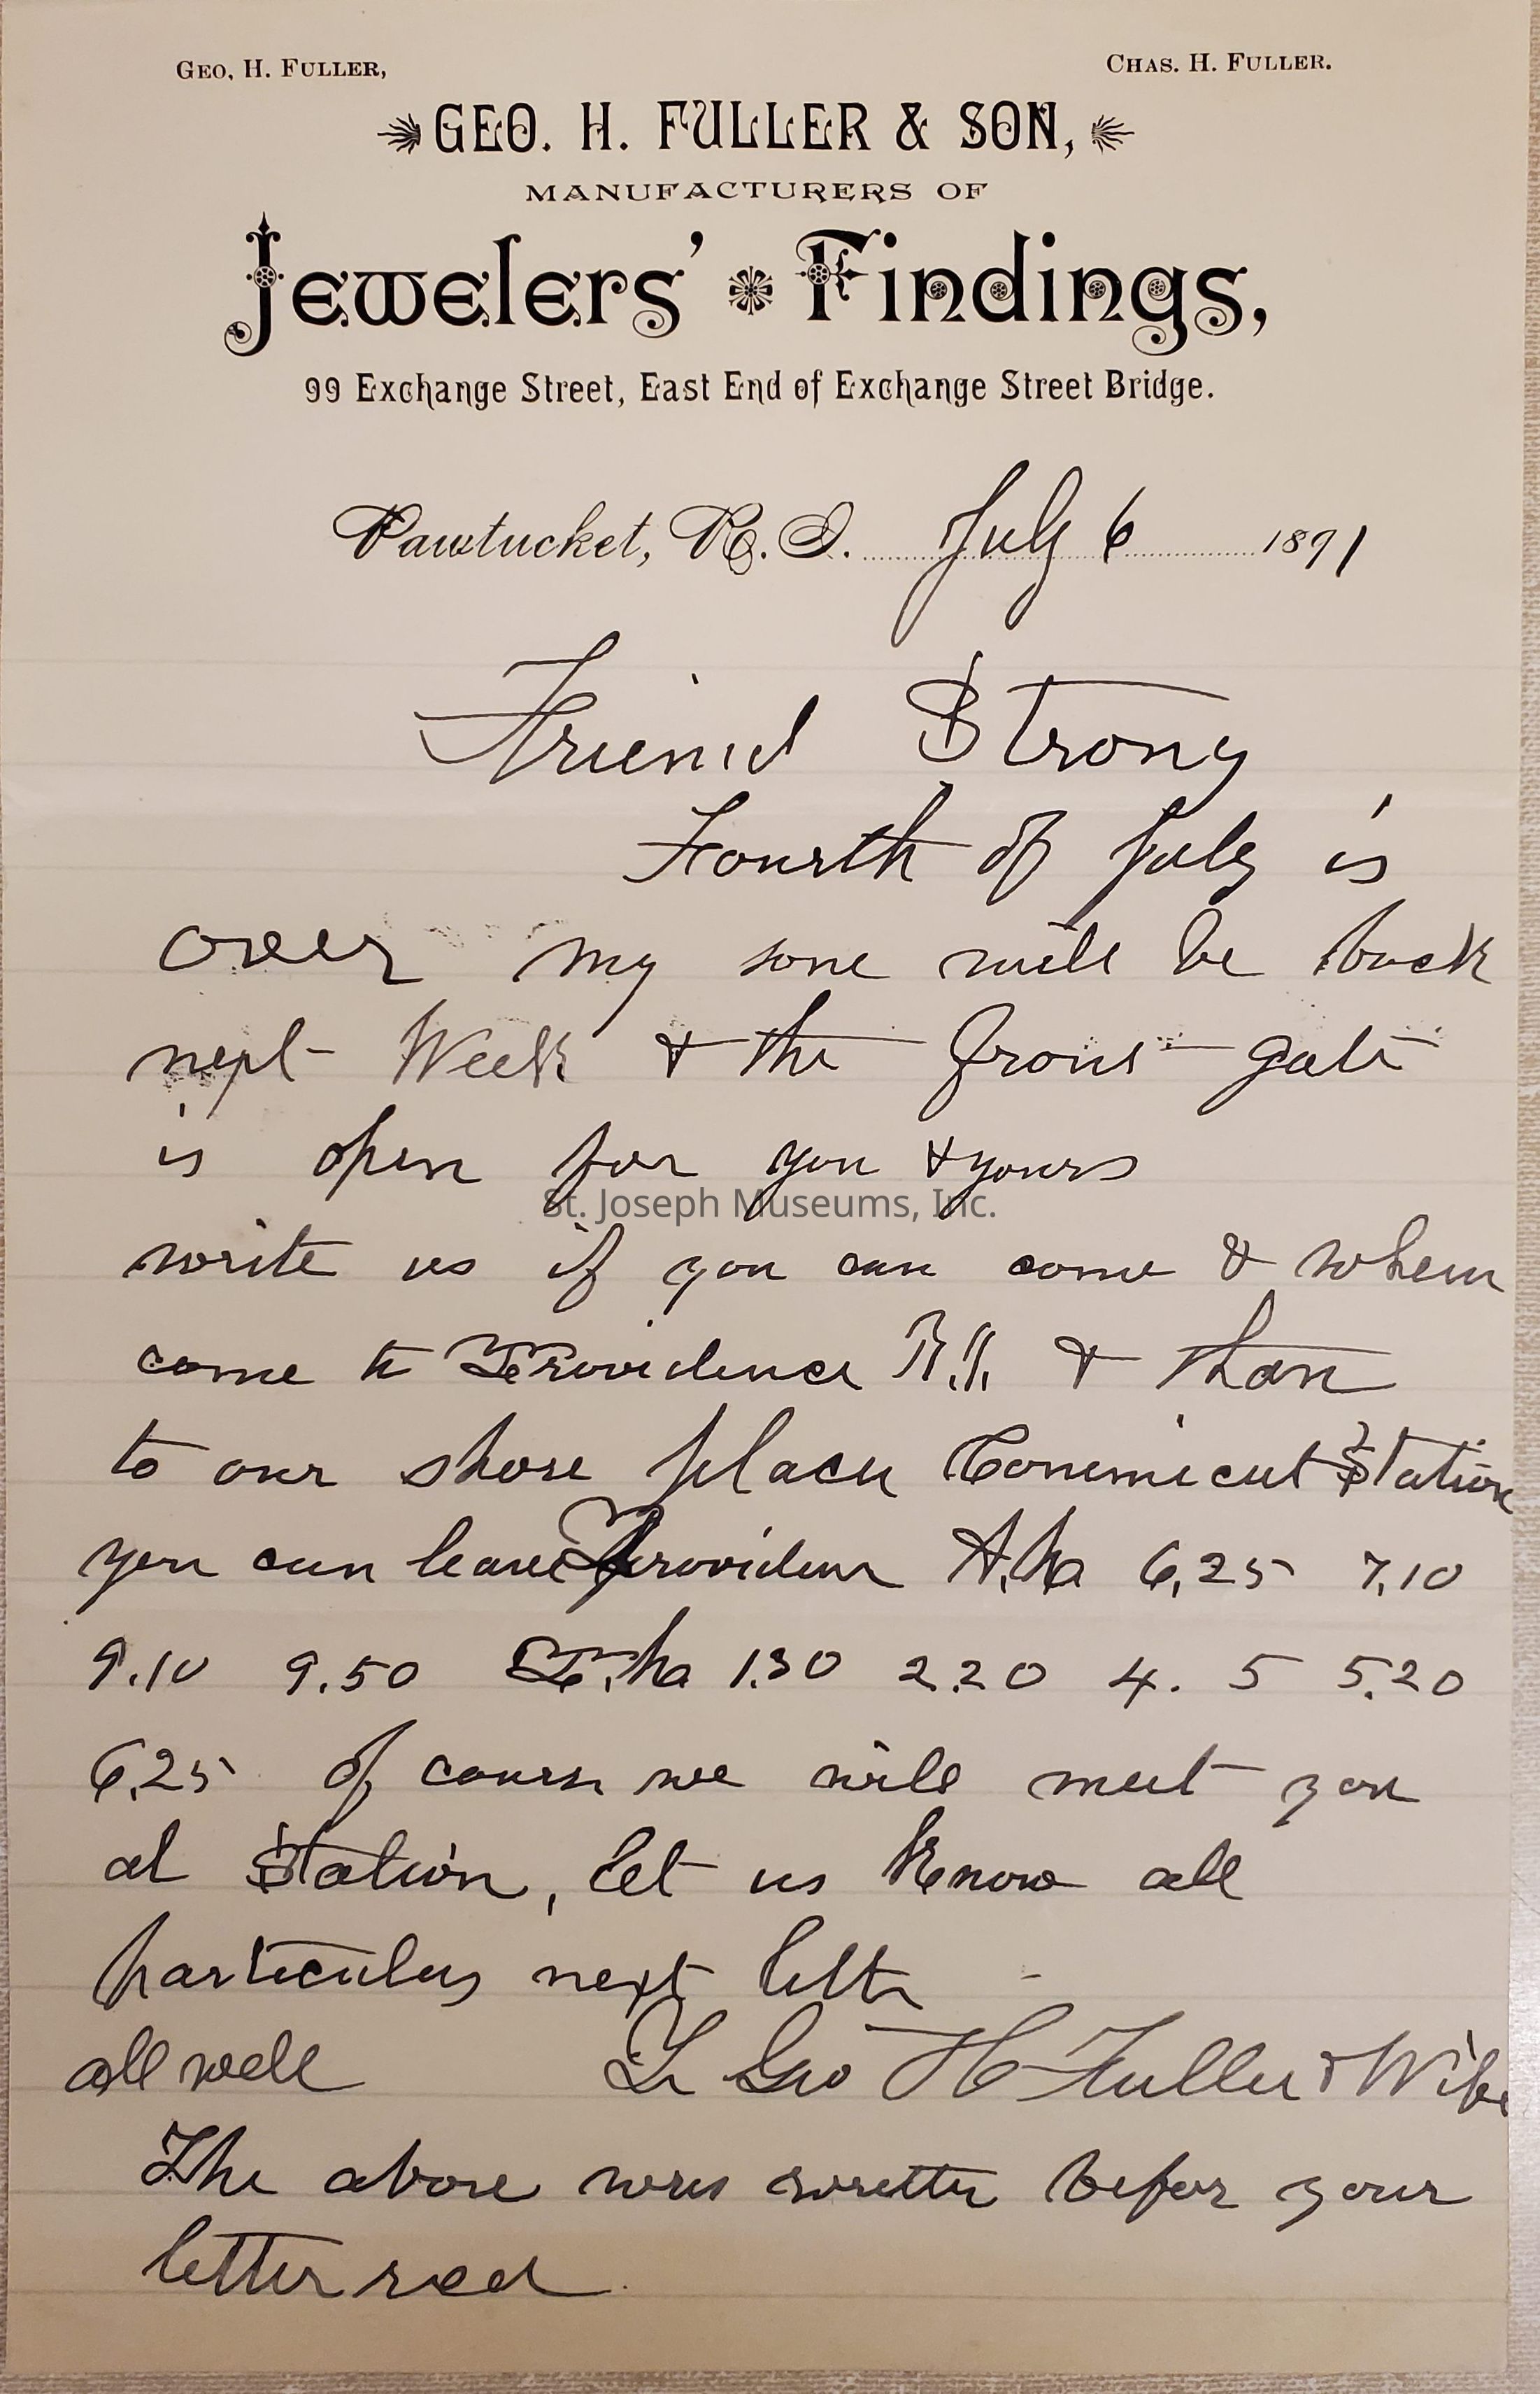 GEO. H. FULLER, CHAS. H. FULLER.
GEO. H. FULLER & SON,
MANUFACTURERS OF
Jewelers' Findings,
99 Exchange Street, East End of Exchange Street Bridge.
Pawtucket, R. I. July 6 1891
Friend Strong
Fourth of July is
over my sone will be back
next Week & the front gate
is open for you & yours
St. Joseph Museums, Inc.
write us if you can come & when
come to Providence R.I. & than
to our shore place Conimicut Station
you can leave Providenc A.M 6,25 7,10
9.10 9.50 P.M 1.30 2.20 4. 5 5.20
6,25 of course we will meet you
at Station, let us Know all
particulars next lettr
all well Geo H Fuller & Wife
The above was writtn befor your
letter rec